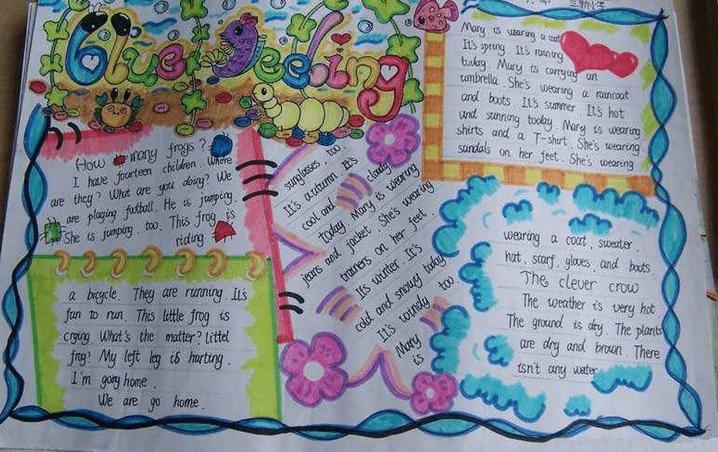 Blue Feeling
How many frogs?
I have fourteen children. Where
are they? What are you doing? We
are playing futball. He is jumping.
She is jumping. too. This frog is
riding
a bicycle. They are running. It's
fun to run. This little frog is
crying. What's the matter? Littel
frog? My left leg is hurting.
I'm going home.
We are go home.
Mary is wearing a coat
It's spring It's raining
today. Mary is carrying an
umbrella. She's wearing a raincoat
and boots. It's summer It's hot
and sunning today. Mary is wearing
shirts and a T-shirt. She's wearing
sandals on her feet. She's wearing
sunglasses too.
It's autumn. It's
cool and cloudy
today Mary is wearing
jeans and jacket. She's wearing
trainers on her feet.
It's winter. It's
cold and snowy today
It's windy too
Mary
is
wearing a coat, sweater.
hat, scarf, gloves, and boots.
The clever crow
The weather is very hot.
The ground is dry. The plants
are dry and brown. There
isn't any water